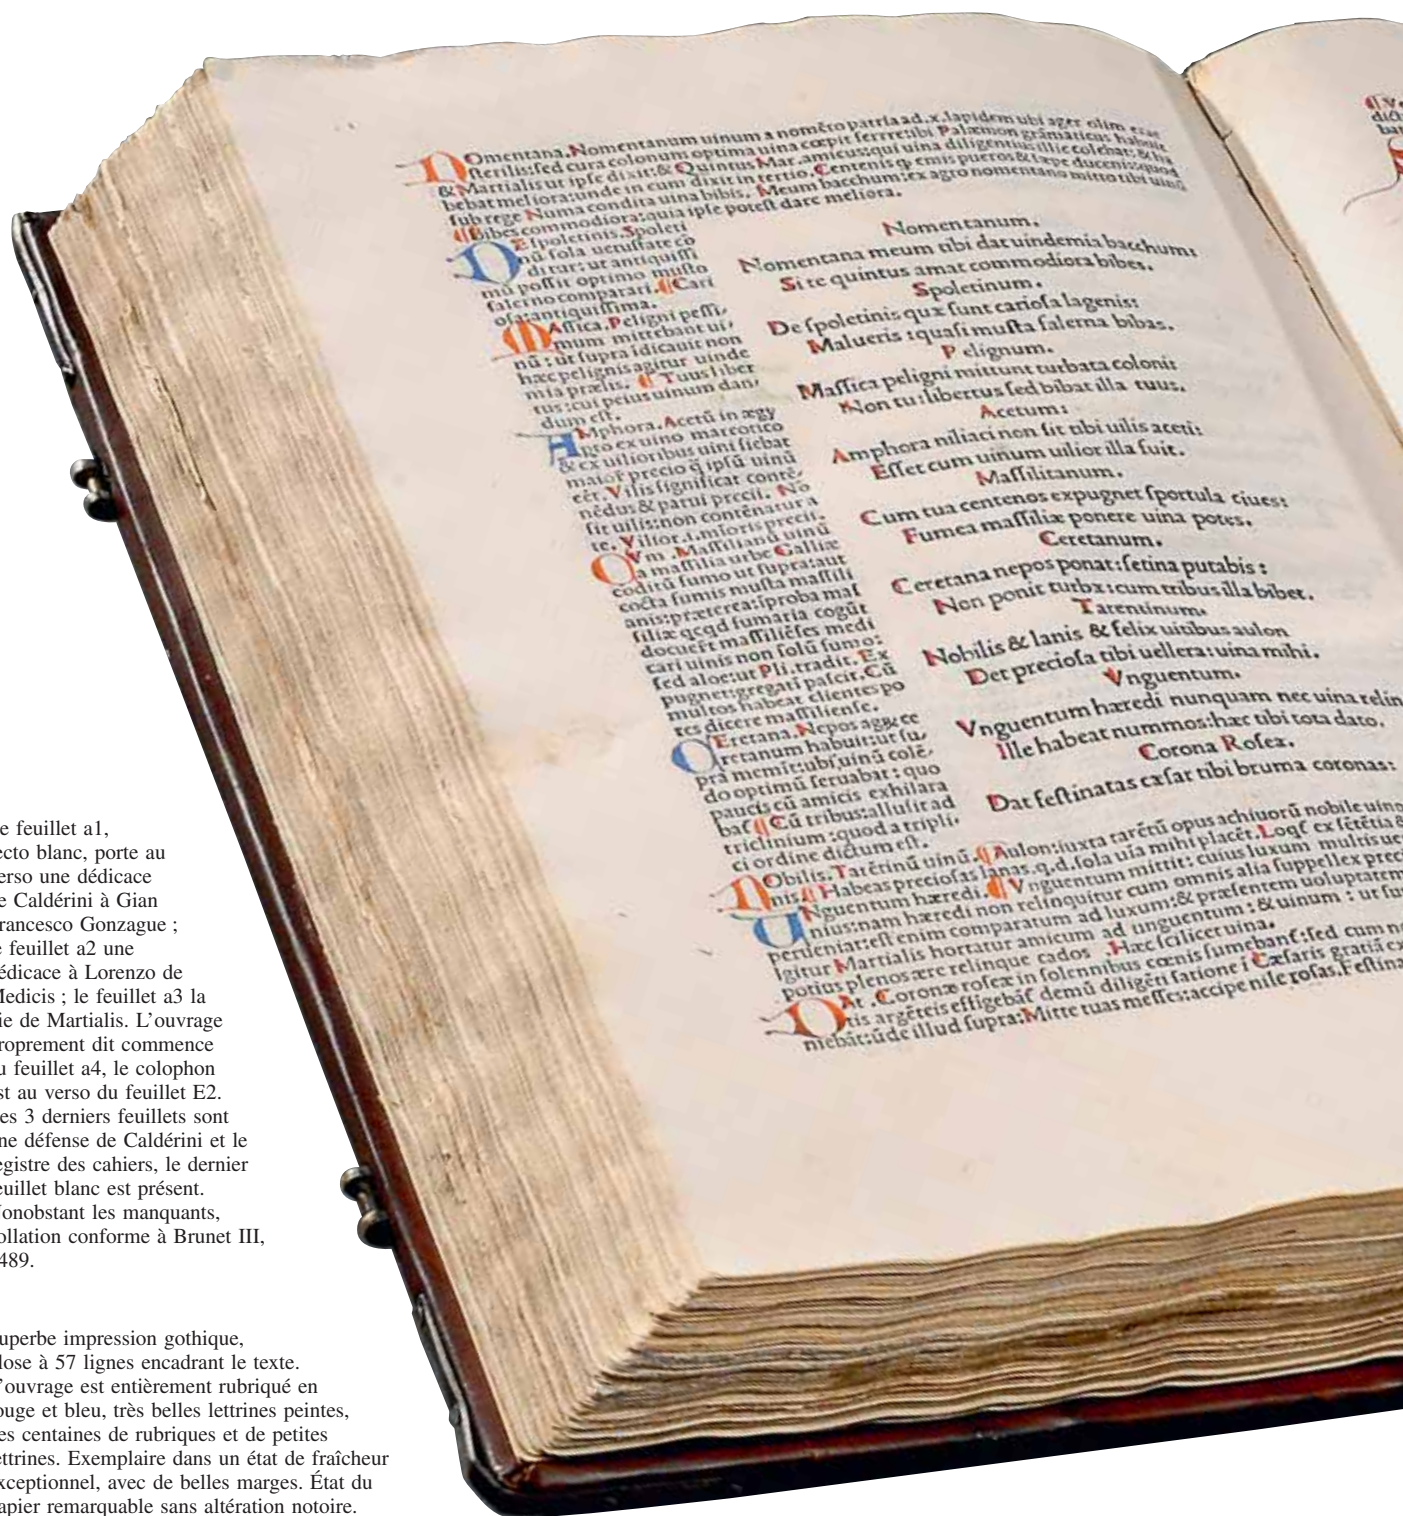 Omentana. Nomentanum uinum a nomēto patria ad .x. lapidem ubi ager olim erat
sterilis: sed cura colonum optima uina cœpit ferrre: ibi Palæmon grāmaticus habuit
& Martialis ut ipse dixit: & Quintus Mar. amicus: qui uina diligentius illic colebat: & ha
bebat meliora: unde in eum dixit in tertio. Centenis emis pueros & sæpe ducenis: quod
sub rege Numa condita uina bibis. Meum bacchum: ex agro nomentano mitto tibi uinū
¶ Bibes commodiora: quia ipse potest dare meliora.
DE spoletinis. Spoleti
nū sola uetustate cō
ditur: ut antiquissi
mū possit optimo musto
falerno comparari. ¶ Cari
osa: antiquissima.
MAssica. Peligni pessi,
mum mittebant ui,
nū: ut supra īdicauit non
hæc pelignis agitur uinde
mia prælis. ¶ Tuus liber
tus: cui peius uinum dan,
dum est.
AMphora. Acetū in ægy
pto ex uino marcotico
& ex uilioribus uini fiebat
maior precio ipsū uinū
eēt. Vilis significat contē,
nēdus & parui precii. No
sit uilis: non contēnatur a
te. Vilior .i. mīoris precii.
CVm. Massilianū uinū
a massilia urbe Galliæ
coditū fumo ut supra: aut
cocta fumis musta massili
anis: præterea: īproba mas
siliæ qcqd fumaria cogūt
docuert massiliēses medi
cari uinis non solū fumo:
sed aloe: ut Pli. tradit. Ex
pugnet: gregati pascit. Cū
multos habeat clientes po
tes dicere massiliense.
CEretana. Nepos agg ce
retanum habuit: ut su,
pra memīt: ubi uinū colē,
do optimū seruabat: quo
paucis cū amicis exhilara
bat ¶ Cū tribus: allusit ad
triclinium: quod a tripli,
ci ordine dictum est.
Nomentanum.
Nomentana meum tibi dat uindemia bacchum:
Si te quintus amat commodiora bibes.
Spoletinum.
De spoletinis quæ sunt cariosa lagenis:
Malueris: quasi musta falerna bibas.
Pelignum.
Massica peligni mittunt turbata coloni:
Non tu: libertus sed bibat illa tuus.
Acetum:
Amphora niliaci non sit tibi uilis aceti:
Esset cum uinum uilior illa fuit.
Massilitanum.
Cum tua centenos expugnet sportula ciues:
Fumea massiliæ ponere uina potes.
Ceretanum.
Ceretana nepos ponat: setina putabis:
Non ponit turbæ: cum tribus illa bibet.
Tarentinum.
Nobilis & lanis & felix uitibus aulon
Det preciosa tibi uellera: uina mihi.
Vnguentum.
Vnguentum hæredi nunquam nec uina relin
Ille habeat nummos: hæc tibi tota dato.
Corona Rosea.
Dat festinatas cæsar tibi bruma coronas:
NObilis. Tarētinū uinū. ¶ Aulon: iuxta tarētū opus achiuorū nobile uino
nis. ¶ Habeas preciosas lanas. q.d. sola uia mihi placēt. Loqt ex sētētia &
VNguentum hæredi. ¶ Vnguentum mittit: cuius luxum multis ue
nius: nam hæredi non relinquitur cum omnis alia suppellex preci
perueniat: est enim comparatum ad luxum: & præsentem uoluptatem
Igitur Martialis hortatur amicum ad unguentum: & uinum: ut su
potius plenos ære relinque cados. Hæc scilicet uina.
DAt. Coronæ roseæ in solennibus cœnis sumebant: sed cum n
tis argēteis effigebāt demū diligēti satione i Cæsaris gratiā ex
mebāt: ūde illud supra: Mitte tuas messes: accipe nile rosas. Festina
e feuillet a1,
ecto blanc, porte au
erso une dédicace
e Caldérini à Gian
rancesco Gonzague ;
e feuillet a2 une
édicace à Lorenzo de
Medicis ; le feuillet a3 la
ie de Martialis. L'ouvrage
roprement dit commence
u feuillet a4, le colophon
st au verso du feuillet E2.
es 3 derniers feuillets sont
ne défense de Caldérini et le
egistre des cahiers, le dernier
euillet blanc est présent.
onobstant les manquants,
ollation conforme à Brunet III,
489.
uperbe impression gothique,
lose à 57 lignes encadrant le texte.
'ouvrage est entièrement rubriqué en
ouge et bleu, très belles lettrines peintes,
es centaines de rubriques et de petites
ettrines. Exemplaire dans un état de fraîcheur
xceptionnel, avec de belles marges. État du
apier remarquable sans altération notoire.